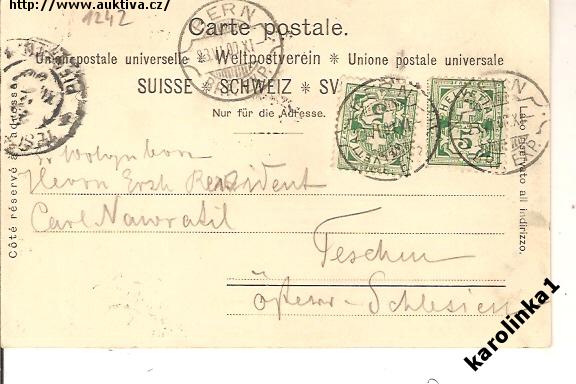 http://www.auktiva.cz/
1242
Carte postale.
BERN
Union postale universelle ✻ Weltpostverein ✻ Unione postale universale
SUISSE ✻ SCHWEIZ ✻ SV
Nur für die Adresse.
Côté réservé à l'adresse.
Lato riservato all indirizzo.
Herrn Erzh President
Carl Nawratil
Teschen
Österr. Schlesien
karolinka1